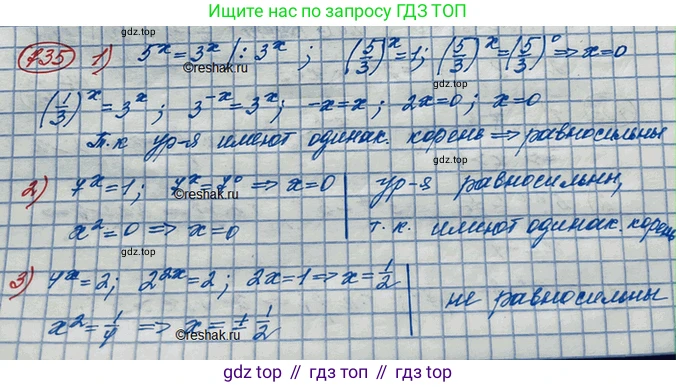 Ищите решения по запросу ГДЗ ТОП
735 1) 5^x = 3^x |: 3^x ; (5/3)^x = 1; (5/3)^x = (5/3)^0 ⇒ x=0
©reshak.ru
(1/3)^x = 3^x ; 3^-x = 3^x ; -x=x; 2x=0; x=0
Т.к ур-я имеют одинак. корень ⇒ равносильны
©reshak.ru
2) 7^x = 1; 7^x = 7^0 ⇒ x=0 | ур-я равносильны,
©reshak.ru
x^2 = 0 ⇒ x=0 | т.к. имеют одинак. корень
3) 4^x = 2; 2^2x = 2; 2x = 1 ⇒ x = 1/2 | не равносильны
x^2 = 1/4 ⇒ x = ± 1/2
©reshak.ru
gdz.top // гдз.топ // гдзтоп.рф